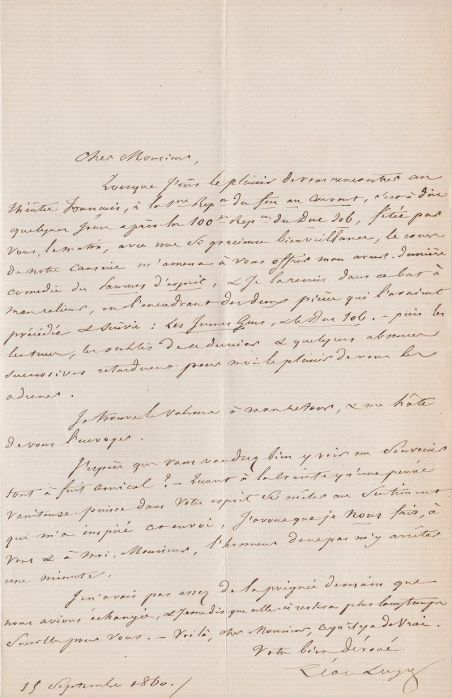 Cher Monsieur,
Lorsque j'eus le plaisir de vous rencontrer au
théâtre Français, à la 1ère Repon du feu au Couvent, c'est à dire
quelques jours après la 100e Repon du Duc Job, fêtée par
vous, le matin, avec une si précieuse bienveillance, le cours
de notre causerie m'amena à vous offrir mon avant-dernière
comédie du Jeunes d'esprit, & je la remis dans ce but à
mon relieur, en l'encadrant des deux pièces qui l'avaient
précédée & suivie : Les Jeunes Gens, & le Duc Job. – puis les
lenteurs, les oublis de ce dernier & quelques absences
successives retardèrent pour moi le plaisir de vous les
adresser.
Je trouve le volume à mon retour, & me hâte
de vous l'envoyer.
J'espère que vous voudrez bien y voir un souvenir
tout à fait amical ? – Quant à la crainte qu'une pensée
vaniteuse puisse dans votre esprit se mêler au sentiment
qui m'a inspiré cet envoi, j'avoue que je nous fais, à
vous & à moi, Monsieur, l'honneur de ne pas m'y arrêter
une minute.
Je n'avais pas assez de la poignée de main que
nous avions échangée, & je me dis que celle-ci restera plus longtemps
sous la main pour vous. – Voilà, cher Monsieur, ce qu'il y a de vrai.
Votre bien dévoué
Léon Laya
15 Septembre 1860. /